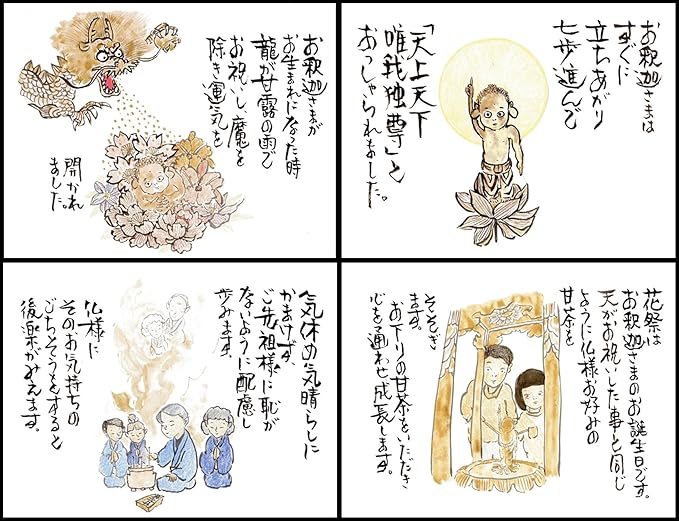 お釈迦さまが
お生まれになった時
龍が甘露の雨で
お祝いし、魔を
除き運気を
開かれ
ました。
お釈迦さまは
すぐに
立ちあがり
七歩進んで
「天上天下
唯我独尊」と
おっしゃられました。
花祭は
お釈迦さまのお誕生日です。
天がお祝いした事と同じ
ように仏様お好みの
甘茶を
そそぎ
お下りの甘茶をいただき
心を通わせ成長します。
気休め気晴らしに
かまけず、
ご先祖様に恥が
ないように配慮し
歩みます。
仏様に
そのお気持ちの
ごちそうをすると
後楽がみえます。